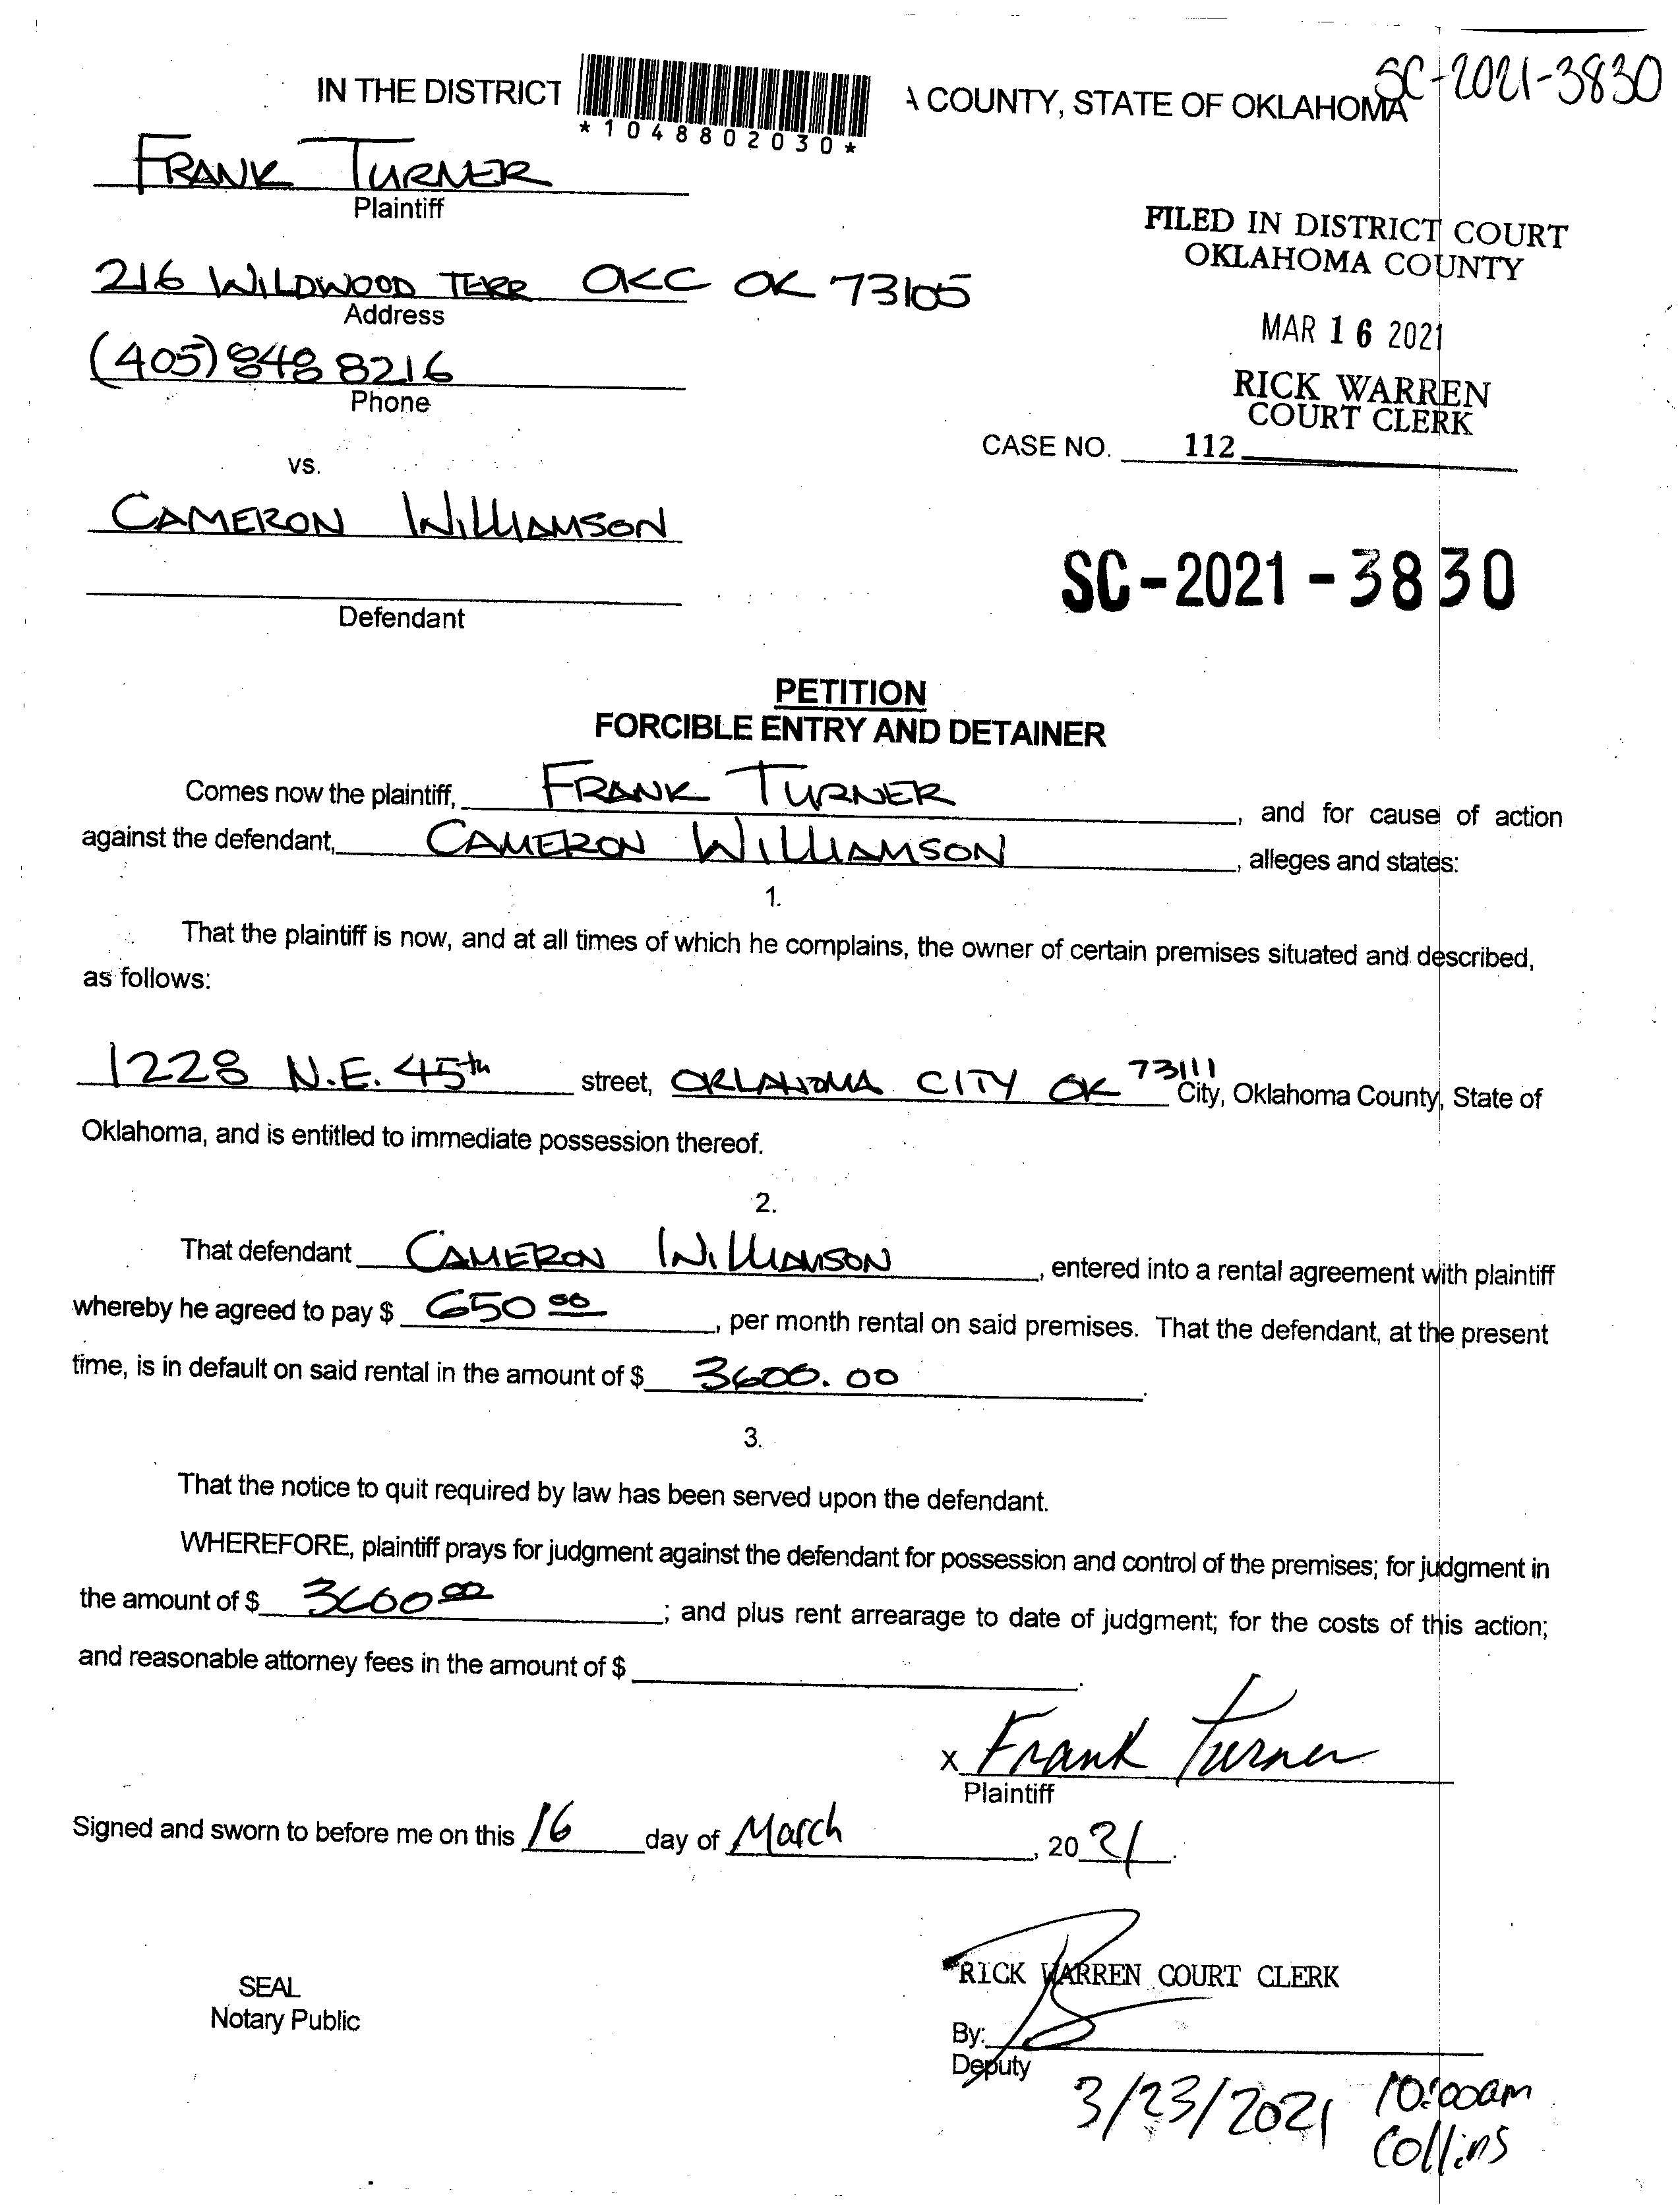 SC-2021-3830
IN THE DISTRICT A COUNTY, STATE OF OKLAHOMA
*1048802030*
FRANK TURNER
Plaintiff
FILED IN DISTRICT COURT
OKLAHOMA COUNTY
216 WILDWOOD TERR OKC OK 73105
Address
MAR 16 2021
(405) 848 8216
Phone
RICK WARREN
COURT CLERK
CASE NO. 112
vs.
CAMERON WILLIAMSON
Defendant
SC-2021-3830
PETITION
FORCIBLE ENTRY AND DETAINER
Comes now the plaintiff, FRANK TURNER, and for cause of action
against the defendant, CAMERON WILLIAMSON, alleges and states:
1.
That the plaintiff is now, and at all times of which he complains, the owner of certain premises situated and described,
as follows:
1228 N.E. 45th street, OKLAHOMA CITY OK 73111 City, Oklahoma County, State of
Oklahoma, and is entitled to immediate possession thereof.
2.
That defendant CAMERON WILLIAMSON, entered into a rental agreement with plaintiff
whereby he agreed to pay $ 650 00, per month rental on said premises. That the defendant, at the present
time, is in default on said rental in the amount of $ 3600.00.
3.
That the notice to quit required by law has been served upon the defendant.
WHEREFORE, plaintiff prays for judgment against the defendant for possession and control of the premises; for judgment in
the amount of $ 3600 00; and plus rent arrearage to date of judgment; for the costs of this action;
and reasonable attorney fees in the amount of $ .
X Frank Turner
Plaintiff
Signed and sworn to before me on this 16 day of March, 20 21.
RICK WARREN COURT CLERK
SEAL
Notary Public
By:
Deputy
3/23/2021 10:00am
Collins